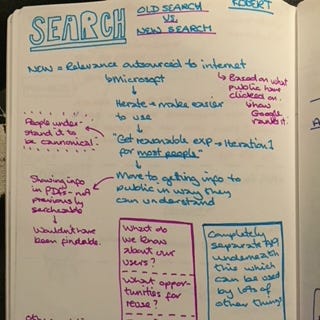 SEARCH
OLD SEARCH
VS.
NEW SEARCH
ROBERT
NEW = Relevance outsourced to internet
↳ Microsoft
↳ Based on what
public have
clicked on.
↳ how
Google
ranks it.
Iterate → make easier
to use
People under-
stand it to
be cannonical.
"Get reasonable exp → Iteration 1
for most people"
Showing info
in PDFs - not
previously
searchable
↳ Wouldn't have
been findable.
Move to getting info to
public in way they
can understand
What do
we know
about our
users?
What oppor-
tunities for
reuse?
Completely
separate API
underneath
this which
can be used
by lots of
other things!